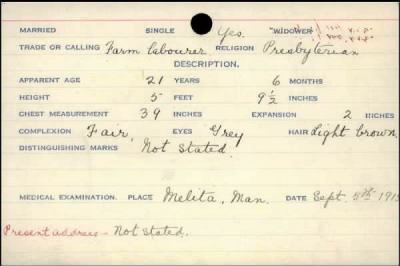 MARRIED SINGLE Yes. WIDOWER
TRADE OR CALLING Farm labourer RELIGION Presbyterian
DESCRIPTION.
APPARENT AGE 21 YEARS 6 MONTHS
HEIGHT 5 FEET 9½ INCHES
CHEST MEASUREMENT 39 INCHES EXPANSION 2 INCHES
COMPLEXION Fair, EYES Grey HAIR Light brown
DISTINGUISHING MARKS Not stated.
MEDICAL EXAMINATION. PLACE Melita, Man. DATE Sept. 5th 191
Present address - Not stated.